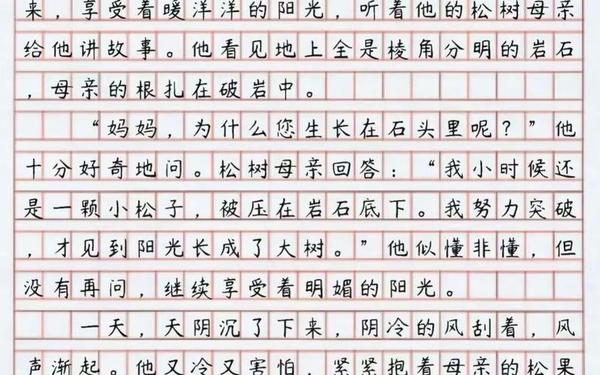 来，享受着暖洋洋的阳光，听着他的松树母亲
给他讲故事。他看见地上全是棱角分明的岩石
，母亲的根扎在破岩中。
“妈妈，为什么您生长在石头里呢？”他
十分好奇地问。松树母亲回答：“我小时候还
是一颗小松子，被压在岩石底下。我努力突破
，才见到阳光长成了大树。”他似懂非懂，但
没有再问，继续享受着明媚的阳光。
一天，天阴沉了下来，阴冷的风刮着，风
声渐起。他又冷又害怕，紧紧抱着母亲的松果